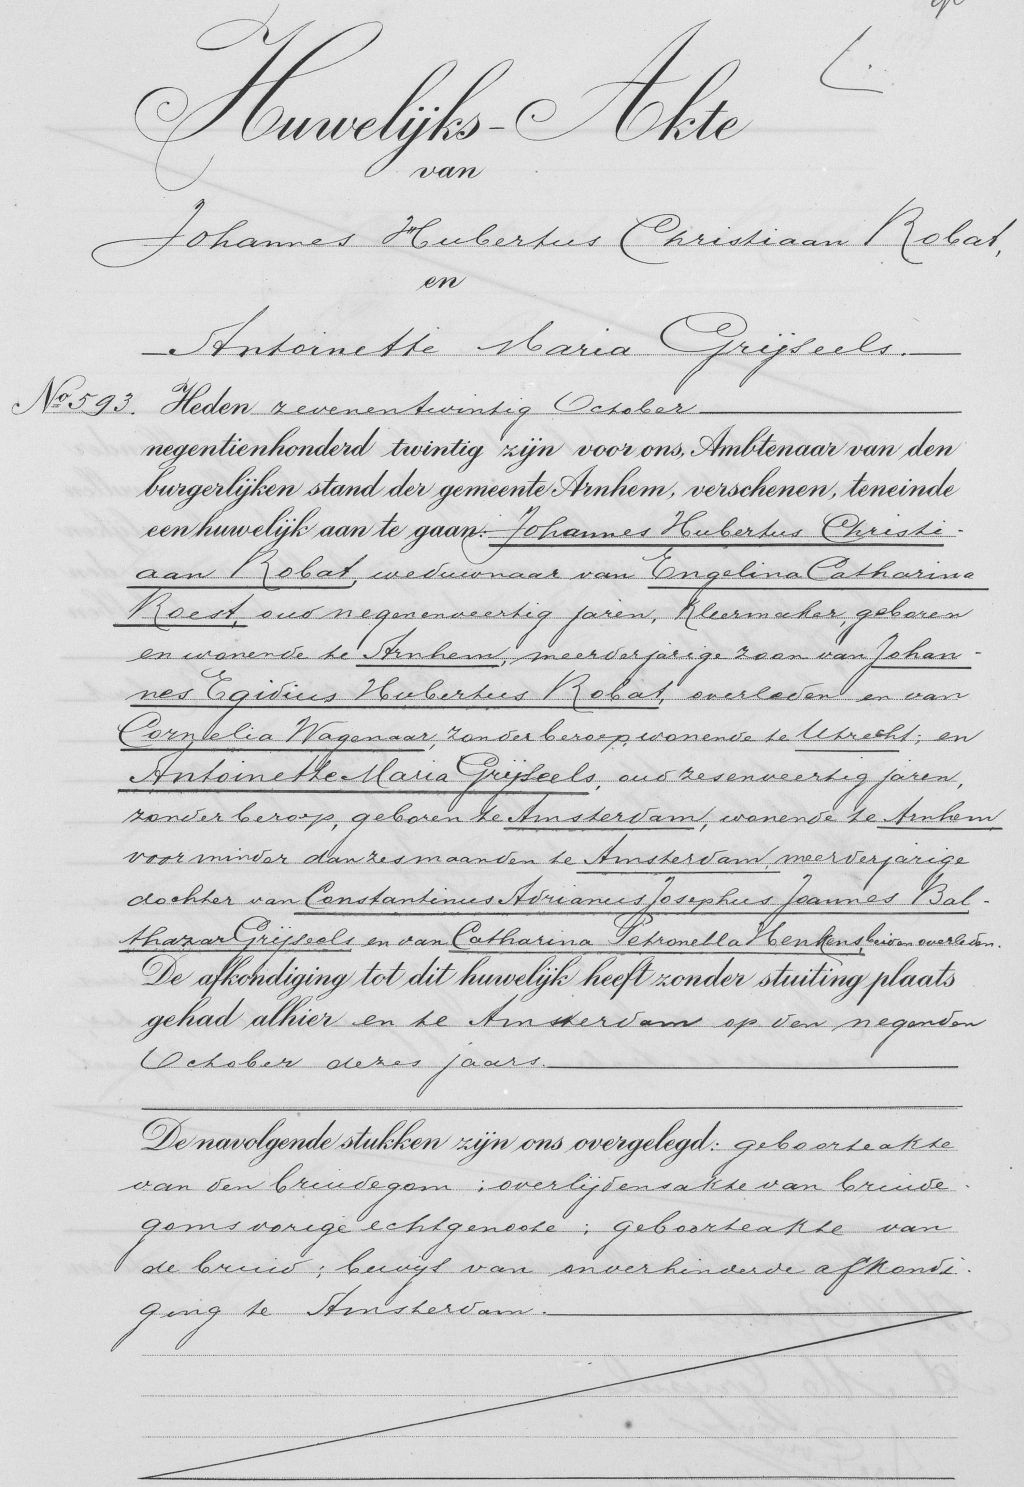 Huwelijks-Akte
van
Johannes Hubertus Christiaan Robat,
en
Antoinette Maria Grijseels.
No 593. Heden zevenentwintig October
negentienhonderd twintig zijn voor ons, Ambtenaar van den
burgerlijken stand der gemeente Arnhem, verschenen, teneinde
een huwelijk aan te gaan: Johannes Hubertus Christi-
aan Robat, weduwnaar van Engelina Catharina
Roest, oud negenenveertig jaren, kleermaker, geboren
en wonende te Arnhem, meerderjarige zoon van Johan-
nes Egidius Hubertus Robat, overleden en van
Cornelia Wagenaar, zonder beroep, wonende te Utrecht; en
Antoinette Maria Grijseels, oud zesenveertig jaren,
zonder beroep, geboren te Amsterdam, wonende te Arnhem
voor minder dan zes maanden te Amsterdam, meerderjarige
dochter van Constantinus Adrianus Josephus Joannes Bal-
thazar Grijseels en van Catharina Petronella Henkens, beiden overleden.
De afkondiging tot dit huwelijk heeft zonder stuiting plaats
gehad alhier en te Amsterdam op den negenden
October dezes jaars.
De navolgende stukken zijn ons overgelegd: geboorteakte
van den bruidegom; overlijdensakte van bruide-
goms vorige echtgenoote; geboorteakte van
de bruid; bewijs van onverhinderde afkondi-
ging te Amsterdam.